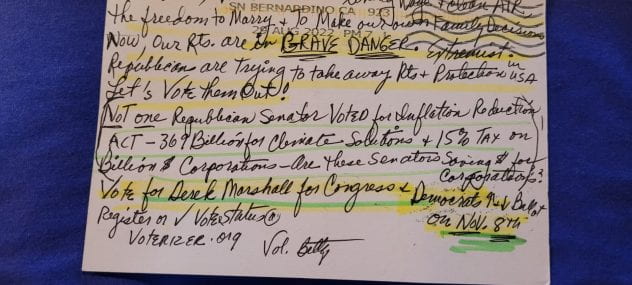 Wage + Clean AIR
SN BERNARDINO CA 923
the freedom to Marry + to Make our Own Family Decisions
29 AUG 2022 PM 7
Now, Our Rts. are in GRAVE DANGER. Extremist
Republicans are trying to take away Rts + Protection in USA
Let's Vote them Out!
Not one Republican Senator VOTED for Inflation Reduction
ACT - 369 Billion for Climate Solutions + 15% TAX on
Billion $ Corporations - Are these Senators Saving $ for
Corporations?
Vote for Derek Marshall for Congress +
Democrats Ballot
on Nov. 8th
Register or ✓ Vote Status @
VOTERIZER.org Vol. Betty